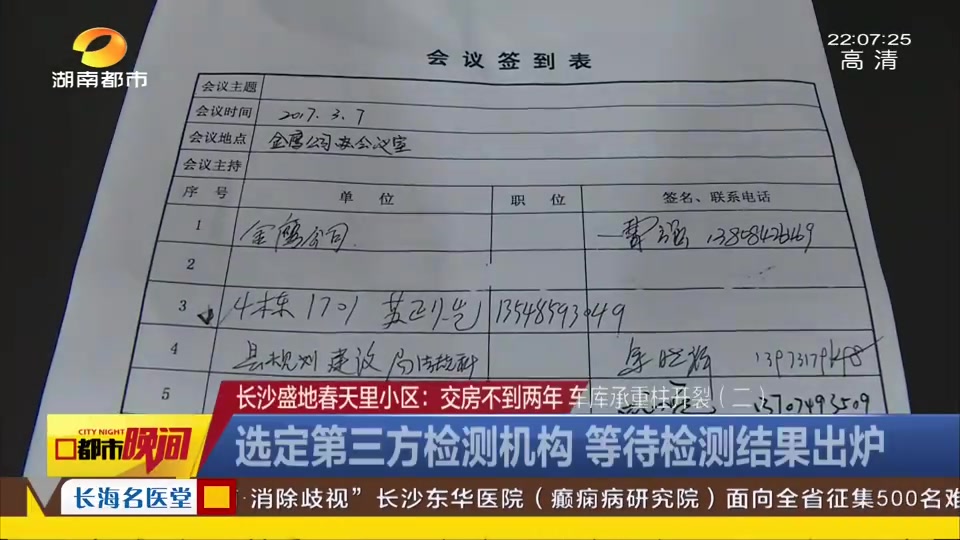 湖南都市
22:07:25
高清
会议签到表
会议主题
会议时间 2017.3.7
会议地点 金鹰公司办公议室
会议主持
序号 单位 职位 签名、联系电话
1 金鹰公司
2
3 4栋1701 13548593049
4 县规划建设局
5 13707493509
长沙盛地春天里小区：交房不到两年 车库承重柱开裂（二）
CITY NIGHT
都市晚间
选定第三方检测机构 等待检测结果出炉
长海名医堂
·消除歧视”长沙东华医院（癫痫病研究院）面向全省征集500名难